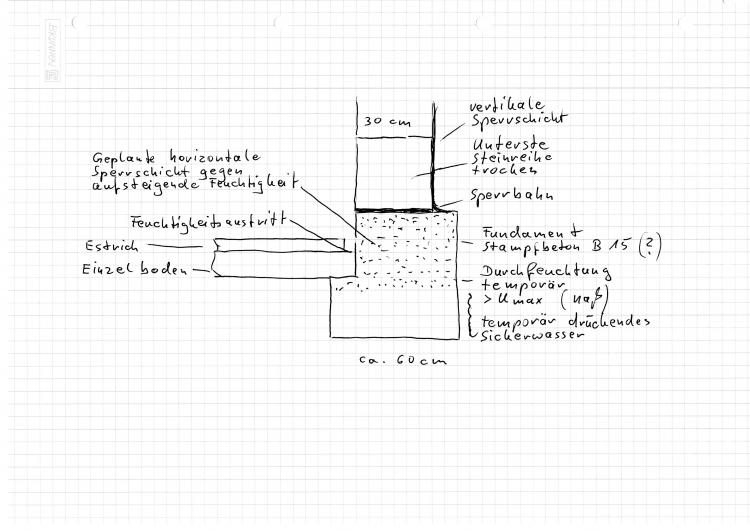 BRUNNEN
30 cm
vertikale
Sperrschicht
Unterste
Steinreihe
trocken
Sperrbahn
Geplante horizontale
Sperrschicht gegen
aufsteigende Feuchtigkeit
Feuchtigkeitsaustritt
Estrich
Einzelboden
Fundament
Stampfbeton B 15 (?)
Durchfeuchtung
temporär
> Umax (naß)
temporär drückendes
Sickerwasser
ca. 60 cm